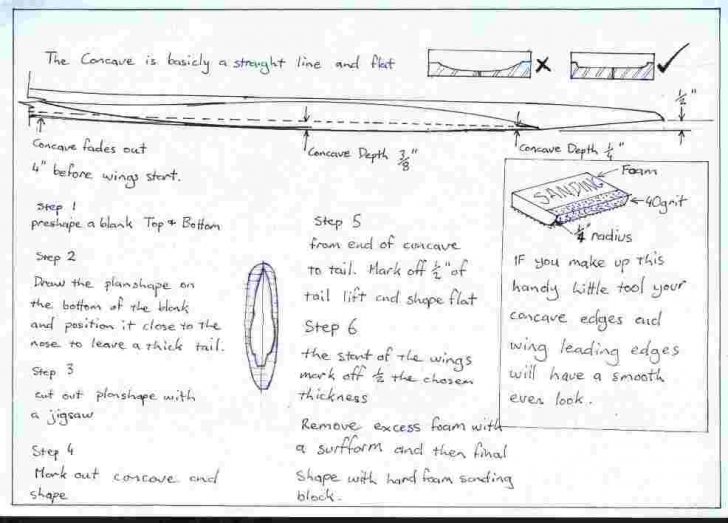 The Concave is basicly a straight line and flat
1/2"
Concave fades out
4" before wings start.
Concave Depth 3/8"
Concave Depth 1/4"
Step 1
preshape a blank Top + Bottom
Step 2
Draw the planshape on
the bottom of the blank
and position it close to the
nose to leave a thick tail.
Step 3
cut out planshape with
a jigsaw
Step 4
Mark out concave and
shape
Step 5
from end of concave
to tail. Mark off 1/2" of
tail lift and shape flat
Step 6
the start of the wings
mark off 1/2 the chosen
thickness
Remove excess foam with
a surfform and then final
shape with hard foam sanding
block.
Foam
SANDING
40grit
1/4" radius
IF you make up this
handy little tool your
concave edges and
wing leading edges
will have a smooth
even look.